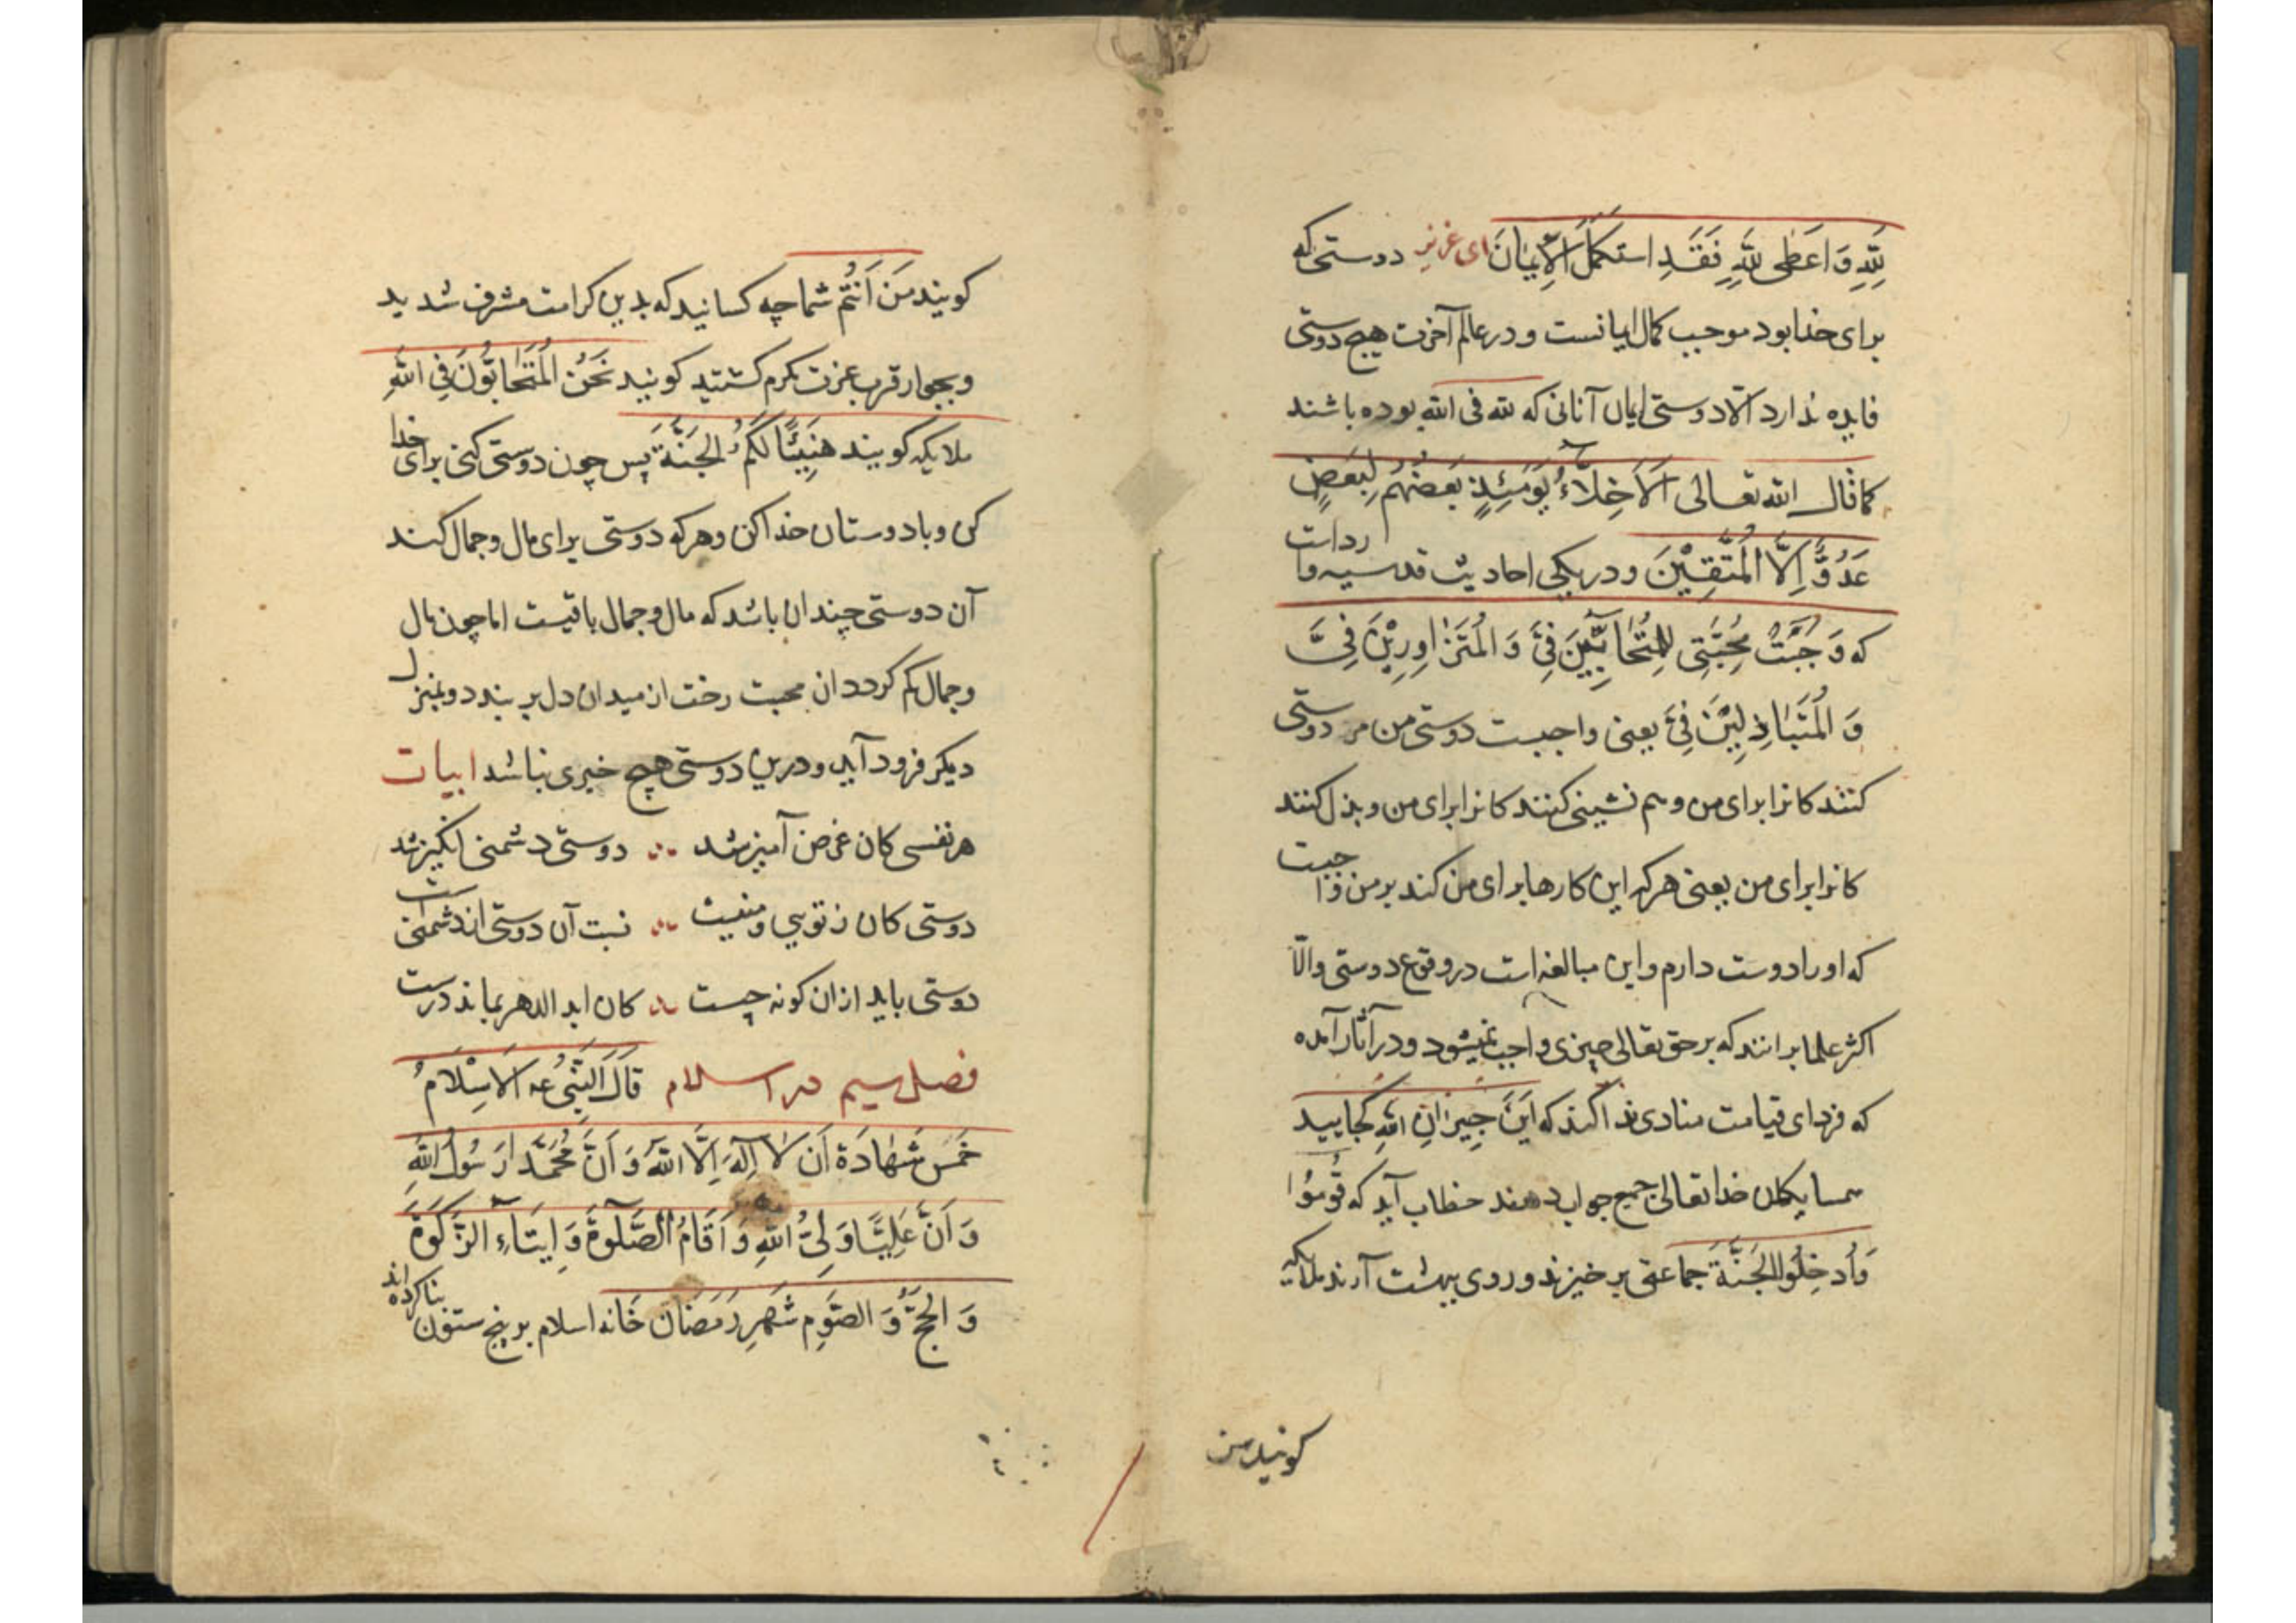 لِلّٰهِ وَ اَعْطٰی لِلّٰهِ فَقَدِ استَکمَلَ الاِیمَانَ ای عزیز دوستی که
برای خدا بود موجب کمال ایمانست و در عالم آخرت هیچ دوستی
فایده ندارد الّا دوستی ایمان آنانی که لله فی الله بوده باشند
کما قال الله تعالی اَلاَخِلاَّءُ یَومَئِذٍ بَعضُهُم لِبَعضٍ
عَدُوٌّ اِلاَّ المُتَّقِیْنَ و در یکی احادیث قدسیه وارد است
که وَجَبَتْ مُحَبَّتِی لِلمُتَحَابِّیْنَ فِیَّ وَ المُتَزَاوِرِیْنَ فِیَّ
وَ المُتَبَاذِلِیْنَ فِیَّ یعنی واجبست دوستی من مر دوستی
کنندکانرا برای من و هم نشینی کنندکانرا برای من و بذل کنند
کانرا برای من یعنی هرکه این کارها برای من کند بر من واجبت
که او را دوست دارم و این مبالغه است در وقوع دوستی والّا
اکثر علما برانند که بر حق تعالی چیزی واجب نمیشود و در آثار آمده
که فردای قیامت منادی ندا کند که اَینَ جِیرَانِ اللهِ کجایید
همسایکان خدا تعالی جمیع جواب دهند خطاب آید که قُومُوا
وَاُدخِلُوا الجَنَّةَ جماعتی بر خیزند و روی بهشت آرند ملایکه
کویند من
کویند مَنْ اَنتُم شما چه کسانید که بدین کرامت مشرف شدید
و بجوار قرب عزت مکرم کشتید کویند نَحنُ المُتَحَابُّونَ فِی اللهِ
ملایکه کویند هنِیئًا لَکُمُ الجَنَّةَ پس چون دوستی کنی برای خدا
کن و با دوستان خدا کن و هرکه دوستی برای مال و جمال کند
آن دوستی چندان باشد که مال و جمال باقیست اما چون مال
و جمال کم کردد ان محبت رخت از میدان دل بر بندد و بمنزل
دیکر فرود آید و درین دوستی هیچ خیری نباشد ابیات
هر نفسی کان غرض آمیز شد دوستی دشمنی انکیز شد
دوستی کان ز تویی و منیت نسبت آن دوستی اندشمنیست
دوستی باید ازان کونه چست کان ابد الدهر بماند درست
فصل سیم در اسلام قَالَ النَّبِیُّ عه الاِسْلَامُ
خَمسٌ شَهَادَة اَن لَا اِلٰهَ اِلَّا اللهُ وَ اَنَّ مُحَمَّدًا رَسُولُ اللهِ
وَ اَنَّ عَلِیًّا وَلِیُّ اللهِ وَ اَقَامُ الصَّلٰوةَ وَ اِیتَاءِ الزَّکٰوةَ
وَ الحَجُّ وَ الصَّومِ شَهرِ رَمَضَانَ خانه اسلام بر پنج ستون بنا کرده اند